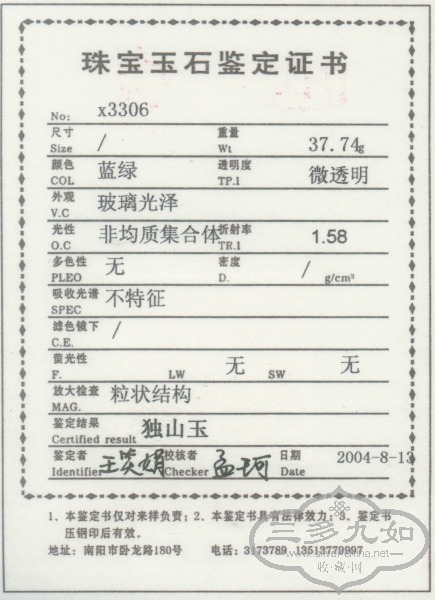 珠宝玉石鉴定证书
No: x3306
尺寸 / 重量
Size Wt 37.74g
颜色 蓝绿 透明度 微透明
COL TP.I
外观 玻璃光泽
V.C
光性 非均质集合体 折射率 1.58
O.C TR.I
多色性 无 密度 /
PLEO D. g/cm³
吸收光谱 不特征
SPEC
滤色镜下 /
C.E.
萤光性 无 无
F. LW SW
放大检查 粒状结构
MAG.
鉴定结果 独山玉
Certified result
鉴定者 王英娟 校核者 孟珂 日期 2004-8-13
Identifier Checker Date
1、本鉴定书仅对来样负责；2、本鉴定书具有法律效力；3、鉴定书
压钢印后有效。
地址：南阳市卧龙路180号 电话：3173789 13513779997
三多九如
收·藏·网